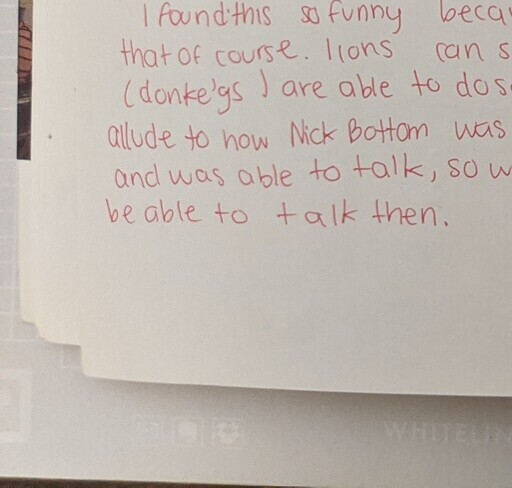 I found this so funny beca
that of course. lions can s
(donke'gs) are able to dos
allude to how Nick Bottom was
and was able to talk, so w
be able to talk then.
WHITELIN